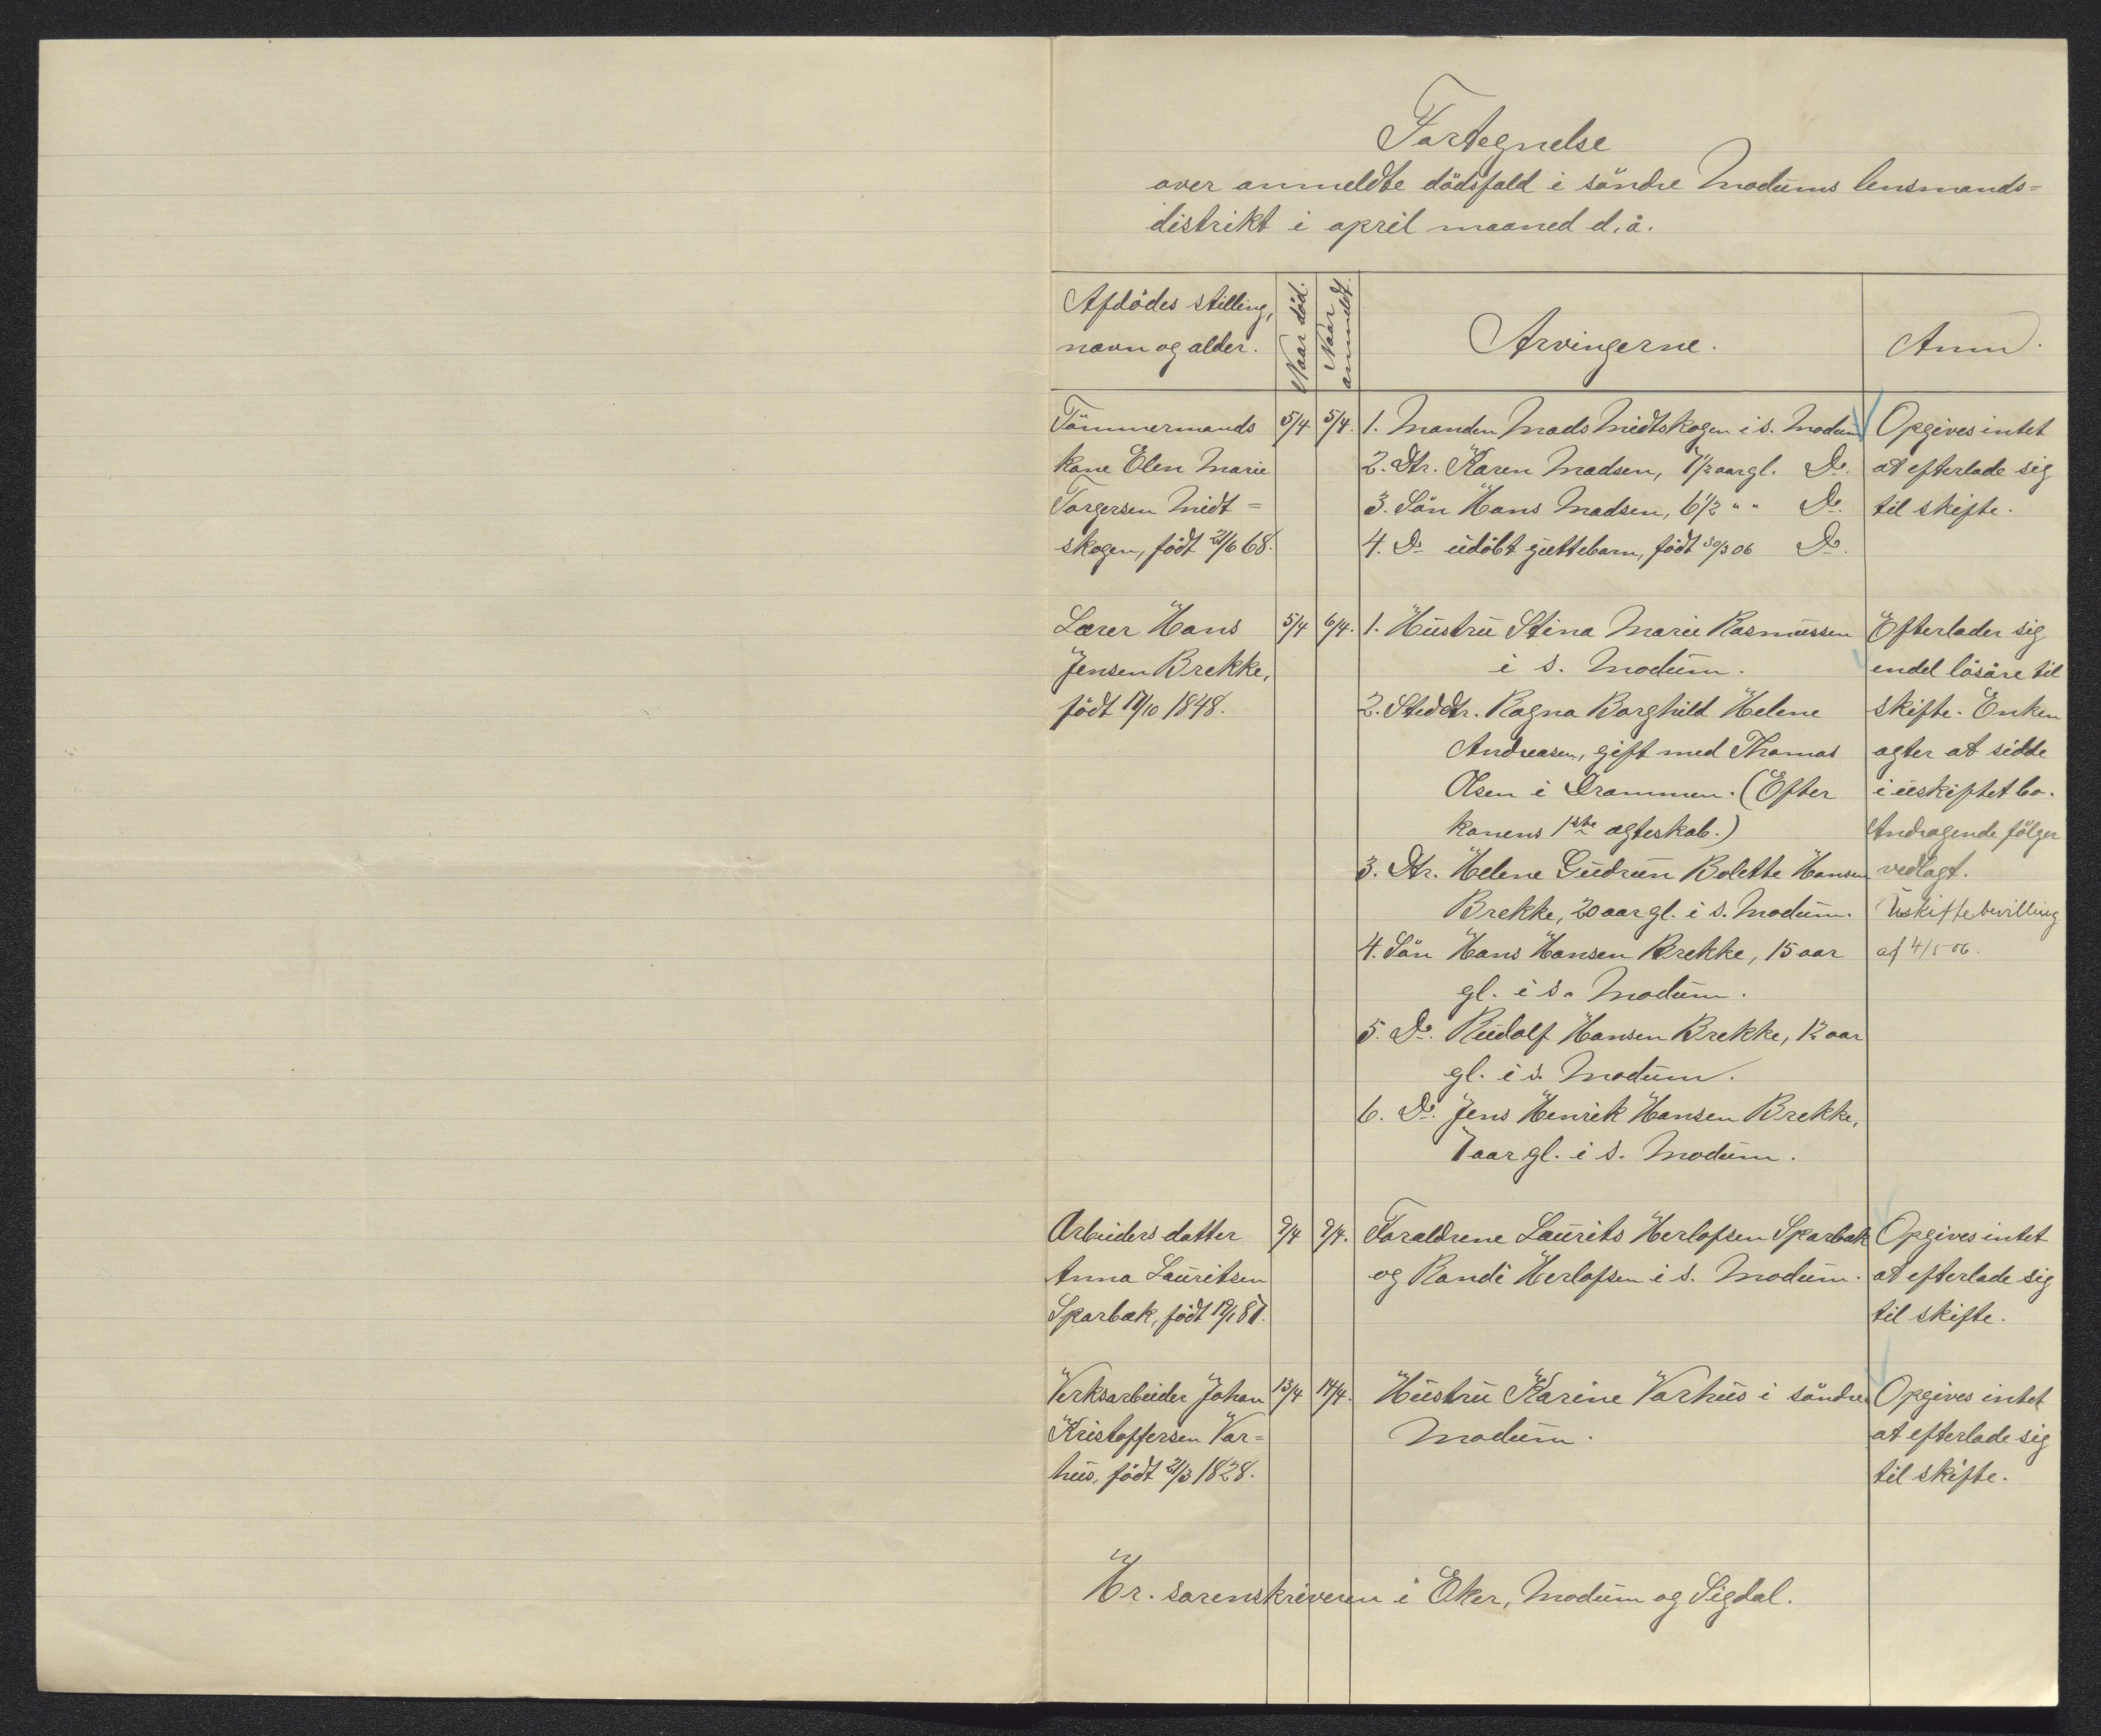 Fortegnelse
over anmeldte dödsfald i söndre Modums lensmands=
distrikt i april maaned d. å.
Afdödes stilling,
navn og alder.
Naar död.
Naar
anmeldt.
Arvingerne.
Anm.
Tömmermands
kone Elen Marie
Torgersen Midt=
skogen, född 21/6 68.
5/4
5/4.
1. Manden Mads Midtskogen i s. Modum
2. Dtr. Karen Madsen, 7 1/2 aar gl. Do.
3. Sön Hans Madsen, 6 1/2 " " Do.
4. Do udöbt guttebarn, födt 30/3 06 Do.
Opgives intet
at efterlade sig
til skifte.
Lærer Hans
Jensen Brekke,
födt 17/10 1848.
5/4
6/4.
1. Hustru Stina Marie Rasmussen
i s. Modum.
2. Steddtr. Ragna Borghild Helene
Andreasen, gift med Thomas
Olsen i Drammen. (Efter
konens 1ste ægteskab.)
3. Dtr. Helene Gudrun Bolette Hansen
Brekke, 20 aar gl. i s. Modum.
4. Sön Hans Hansen Brekke, 15 aar
gl. i s. Modum.
5. Do. Rudolf Hansen Brekke, 12 aar
gl. i s. Modum.
6. Do. Jens Henrik Hansen Brekke,
7 aar gl. i s. Modum.
Efterlader sig
endel lösöre til
skifte. Enken
agter at sidde
i uskiftet bo.
Andragende fölger
vedlagt.
Uskiftebevilling
af 4/5 06.
Arbeiders datter
Anna Lauritsen
Sparbæk, födt 19/1 87.
9/4
9/4.
Forældrene Laurits Herlofsen Sparbæk
og Randi Herlofsen i s. Modum.
Opgives intet
at efterlade sig
til skifte.
Verksarbeider Johan
Kristoffersen Var=
hus, födt 21/3 1828.
13/4
14/4.
Hustru Karine Varhus i söndre
Modum.
Opgives intet
at efterlade sig
til skifte.
Hr. sorenskriveren i Eker, Modum og Sigdal.